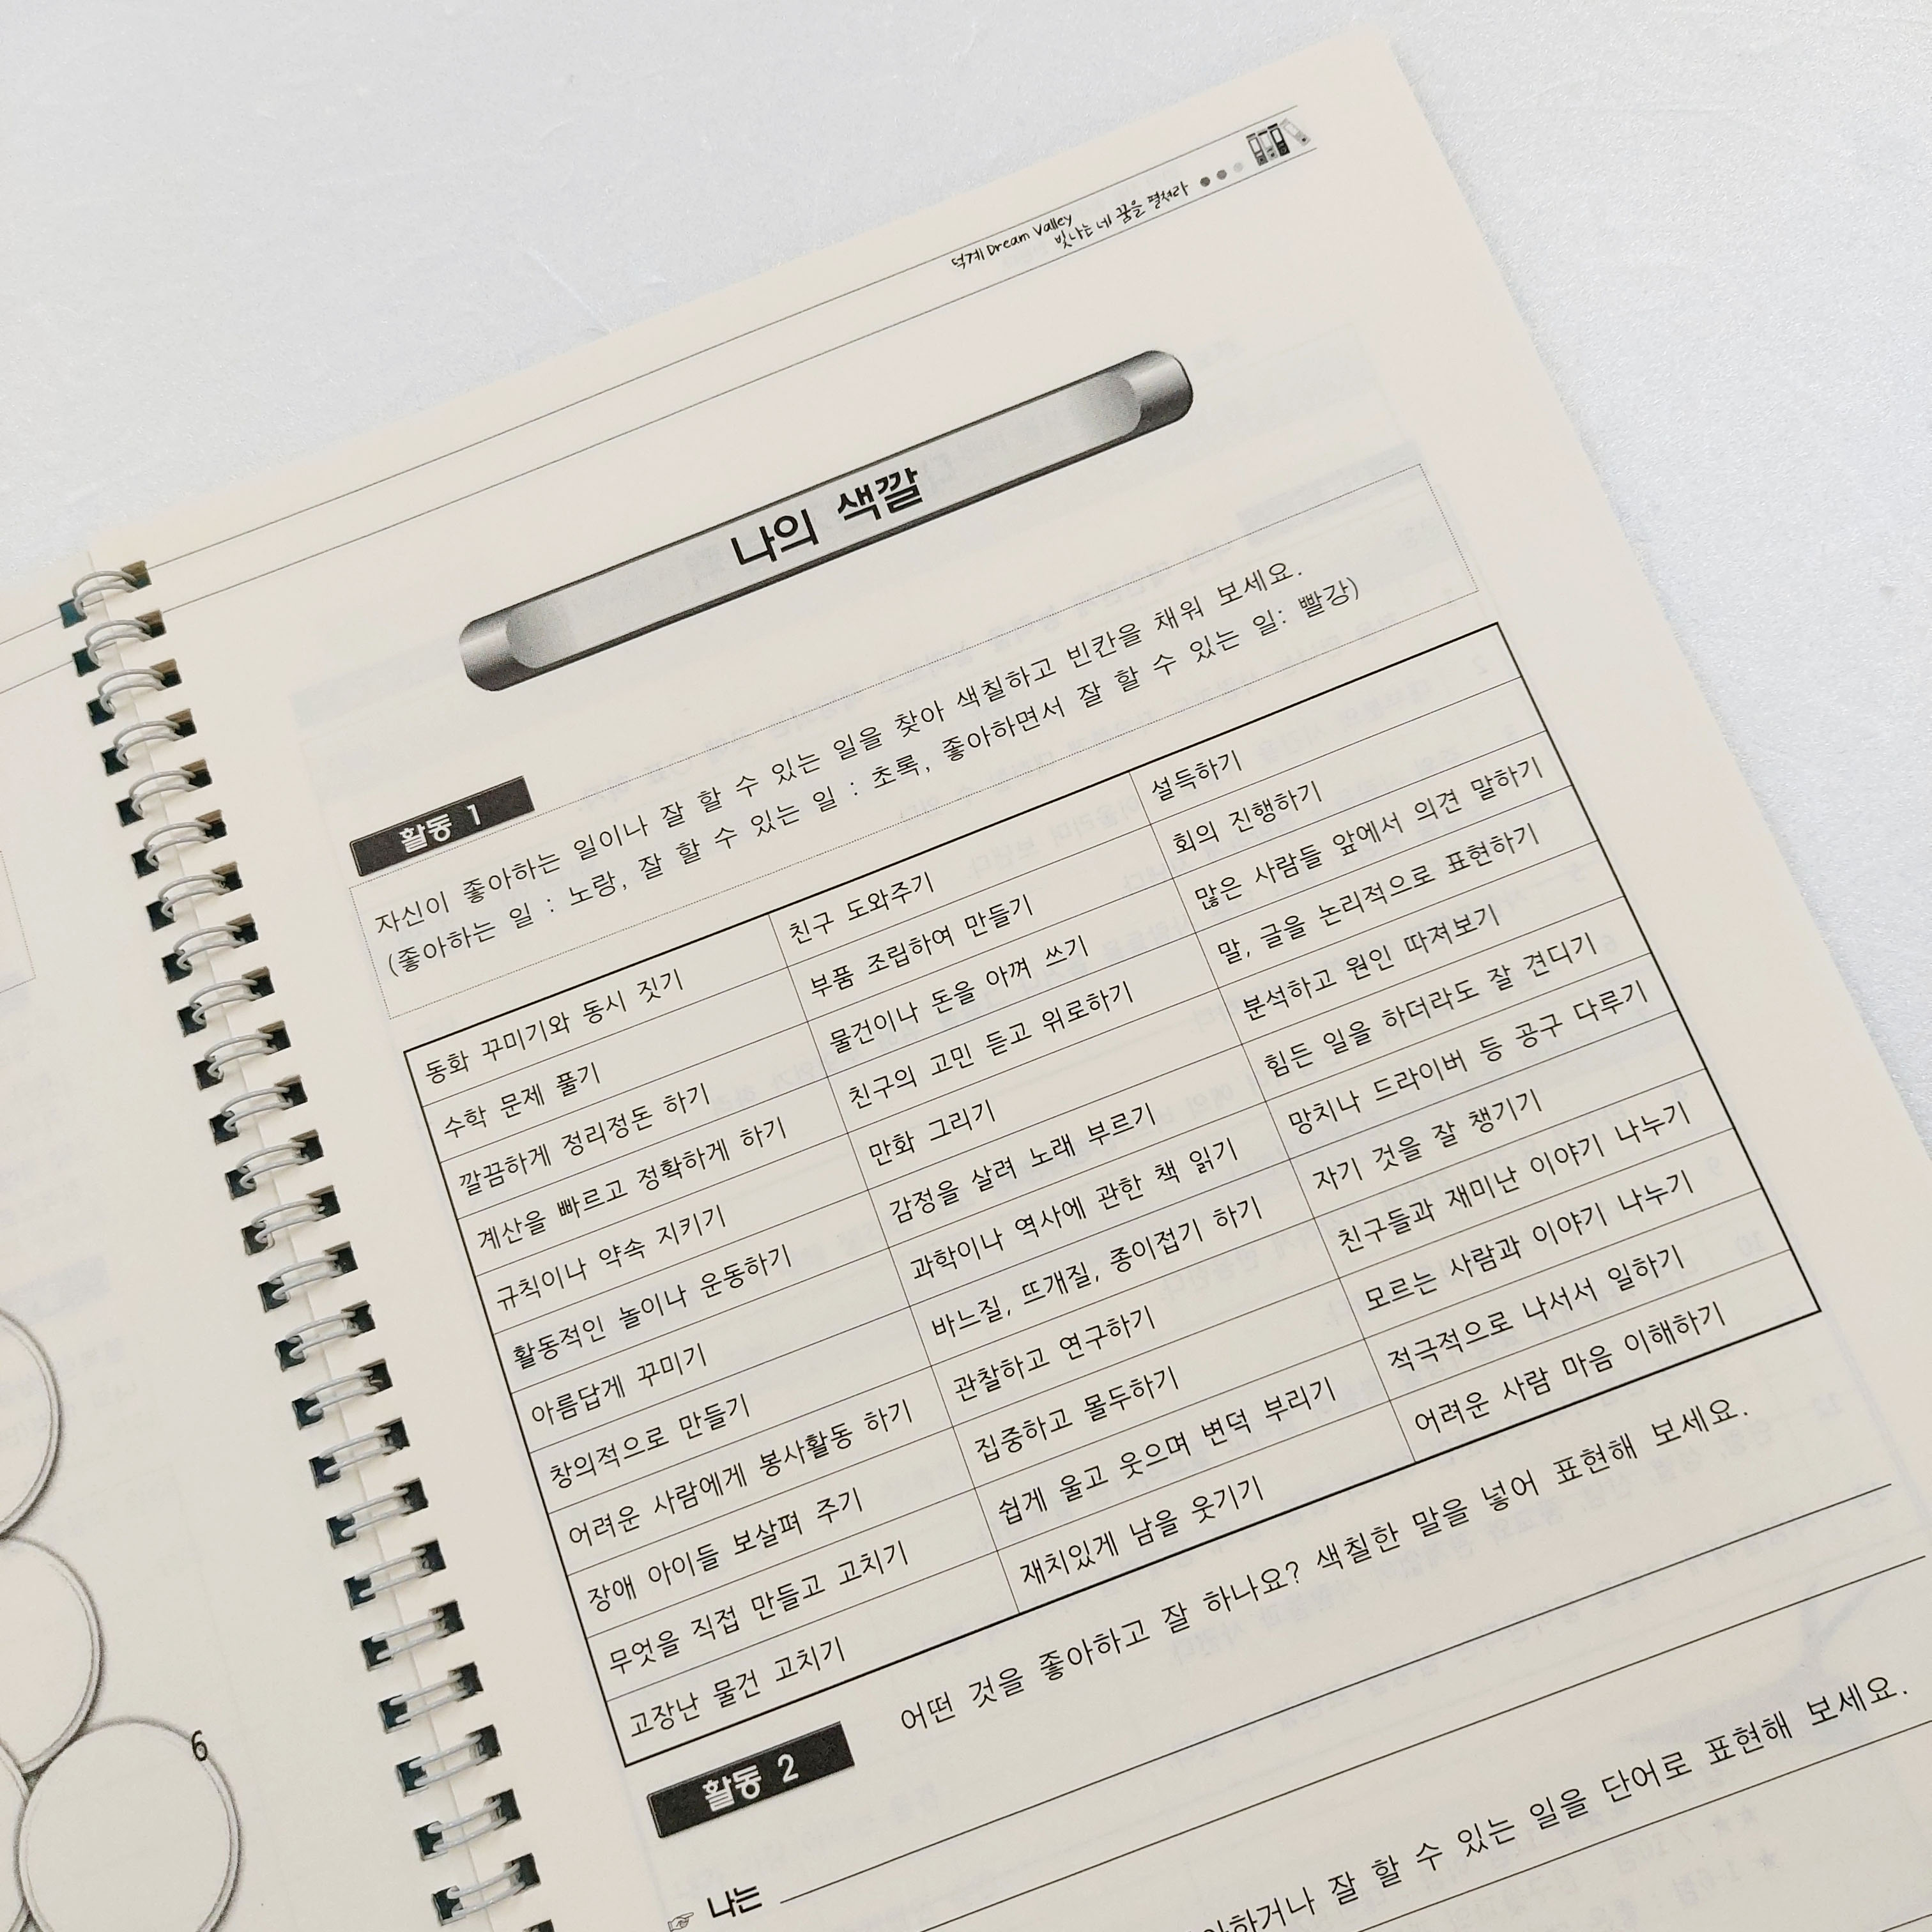 덕계 Dream Valley
빛나는 네 꿈을 펼쳐라
나의 색깔
활동 1
자신이 좋아하는 일이나 잘 할 수 있는 일을 찾아 색칠하고 빈칸을 채워 보세요.
(좋아하는 일 : 노랑, 잘 할 수 있는 일 : 초록, 좋아하면서 잘 할 수 있는 일: 빨강)
동화 꾸미기와 동시 짓기 친구 도와주기 설득하기
수학 문제 풀기 부품 조립하여 만들기 회의 진행하기
깔끔하게 정리정돈 하기 물건이나 돈을 아껴 쓰기 많은 사람들 앞에서 의견 말하기
계산을 빠르고 정확하게 하기 친구의 고민 듣고 위로하기 말, 글을 논리적으로 표현하기
규칙이나 약속 지키기 만화 그리기 분석하고 원인 따져보기
활동적인 놀이나 운동하기 감정을 살려 노래 부르기 힘든 일을 하더라도 잘 견디기
아름답게 꾸미기 과학이나 역사에 관한 책 읽기 망치나 드라이버 등 공구 다루기
창의적으로 만들기 바느질, 뜨개질, 종이접기 하기 자기 것을 잘 챙기기
어려운 사람에게 봉사활동 하기 관찰하고 연구하기 친구들과 재미난 이야기 나누기
장애 아이들 보살펴 주기 집중하고 몰두하기 모르는 사람과 이야기 나누기
무엇을 직접 만들고 고치기 쉽게 울고 웃으며 변덕 부리기 적극적으로 나서서 일하기
고장난 물건 고치기 재치있게 남을 웃기기 어려운 사람 마음 이해하기
활동 2
어떤 것을 좋아하고 잘 하나요? 색칠한 말을 넣어 표현해 보세요.
☞ 나는
잘 할 수 있는 일을 단어로 표현해 보세요.
6